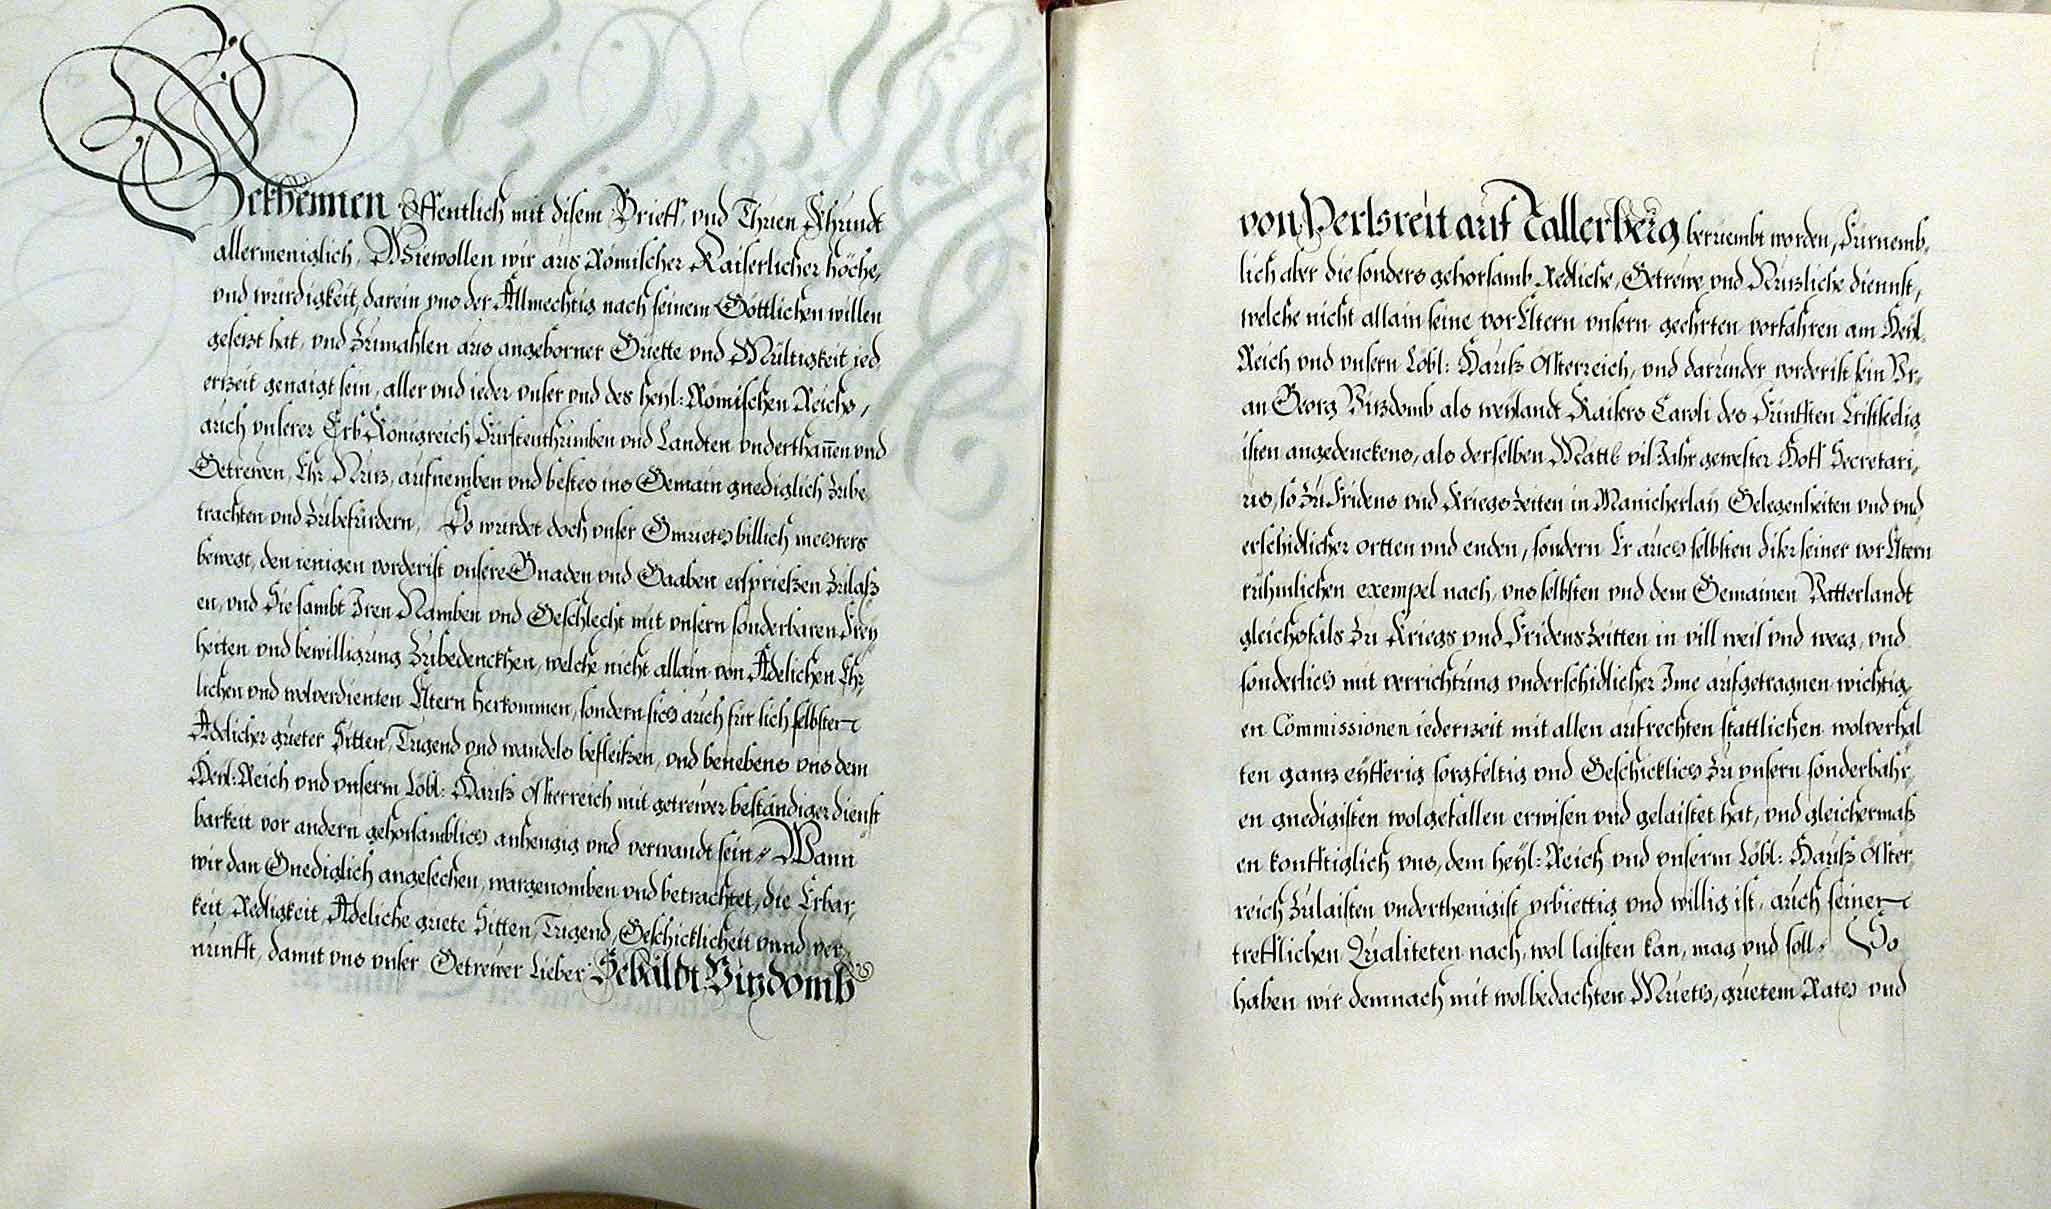 Bekhennen Offentlich mit disem Brieff, vnd Thuen Khundt
allermeniglich, Wiewollen wir aus Römischer Kaiserlicher höche,
vnd würdigkeit, darein vns der Allmechtig nach seinem Göttlichen willen
gesetzt hat, vnd Zumahlen aus angeborner Güette vnd Mültigkeit ied
erzeit genaigt sein, aller vnd ieder vnser vnd des heyl: Römischen Reichs,
auch vnserer Erb Königreich Fürstenthumben vnd Landten vnderthanen vnd
Getrewen, Ehr, Nutz, aufnemben vnd bestes ins Gemain gnediglich Zube
trachten vnd Zubefürdern, So würdet doch vnser Gmueth billich mehrers
bewegt, den ienigen vorderist vnsere Gnaden vnd Gaaben ersprießen Zulaß
en, vnd Sie sambt Iren Namben vnd Geschlecht mit vnsern sonderbaren Frey
heiten vnd bewilligung Zubedenckhen, welche nicht allain von Adelichen Ehr,
lichen vnd wolverdienten Eltern herkommen, sondern sich auch für sich selbsten
Adelicher gueter Sitten, Tugend vnd wandels befleißen, vnd benebens vns dem
Heyl: Reich vnd vnserm Löbl: Hauß Österreich mit getrewer beständiger dienst
barkeit vor andern gehorsamblich anhengig vnd verwandt sein, Wann
wir dan Gnediglich angesechen, wargenomben vnd betrachtet, die Erbar,
keit, Redligkeit, Adeliche guete Sitten, Tugend, Geschicklicheit vnnd ver
nunfft, damit vns vnser Getrewer Lieber Sebaldt Vitzdomb
von Perlsreit auf Tallerberg beruembt worden, Fürnemb,
lich aber die sonders gehorsamb Redliche, Getrewe vnd Nutzliche diennst,
welche nicht allain seine vor Eltern vnsern geehrten vorfahren am Heyl:
Reich vnd vnsern Löbl: Hauß Österreich, vnd darunder vorderist sein Vr,
an Georg Vitzdomb als weylandt Kaisers Caroli des Fünfften Cristseelig
isten angedenckens, als derselben Matt: vil Jahr gewester Hoff Secretari,
us, so Zu Fridens vnd Kriegs Zeiten in Manicherlay Gelegenheiten vnd vnd
erschidlicher ortten vnd enden, sondern Er auch selbsten diser seiner vor Eltern
rühmlichen exempel nach, vns selbsten vnd dem Gemainen Vatterlandt
gleichsfals Zu Kriegs vnd Fridens Zeitten in vill weil vnd weeg, vnd
sonderlich mit verrichtung vnderschidlicher Ime aufgetragnen wichtig,
en Commissionen iederzeit mit allen aufrechten stattlichen wolverhal
ten gantz eyfferig sorgfeltig vnd Geschicklich Zu vnsern sonderbahr,
en gnedigisten wolgefallen erwisen vnd gelaistet hat, vnd gleichermaß
en konfftiglich vns, dem heyl: Reich vnd vnserm Löbl: Hauß Öster,
reich Zulaisten vnderthenigist vrbiettig vnd willig ist, auch seiner
trefflichen Qualiteten nach, wol laisten kan, mag vnd soll. So
haben wir demnach mit wolbedachten Mueth, guetem Rath vnd